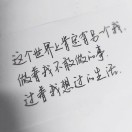 这个世界上肯定有另个我,
做着我不敢做的事,
过着我想过的生活.